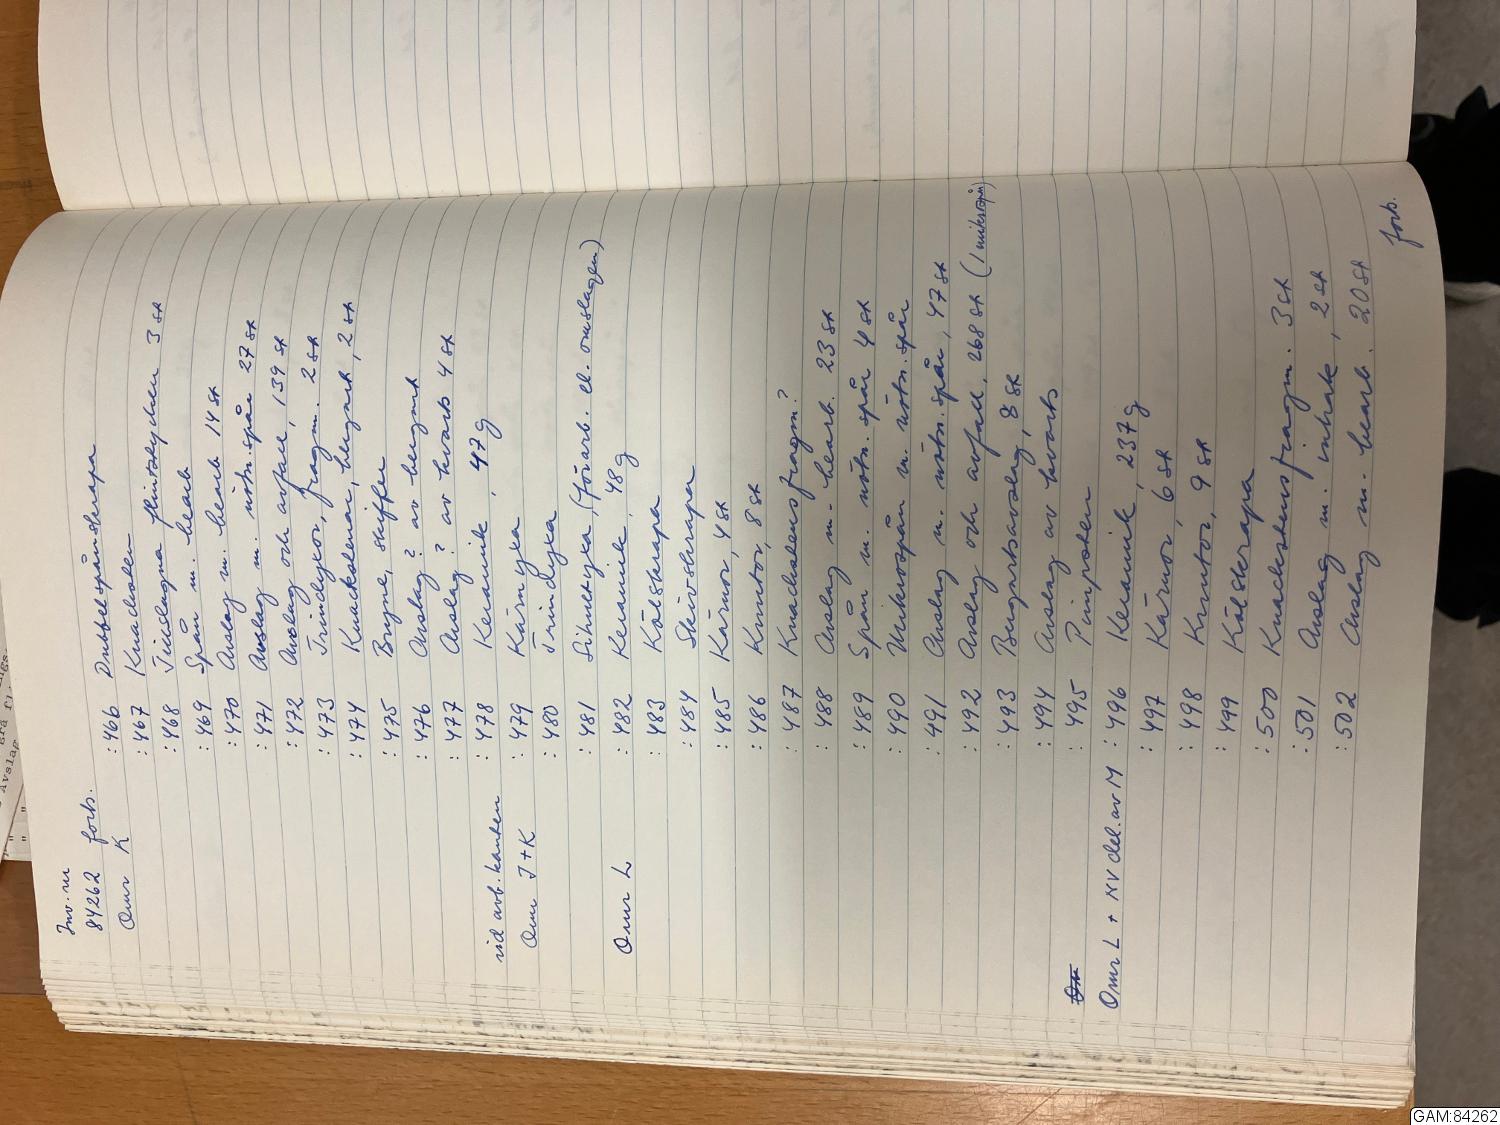 Inv. nr
84262 forts.
Omr K
:466 Dubbelspånskrapa
:467 Knacksten
:468 Tillslagna flintstycken 3 st
:469 Spån m. bearb
:470 Avslag m. bearb 14 st
:471 Avslag m. nötn. spår 27 st
:472 Avslag och avfall, 139 st
:473 Trindyxor, fragm. 2 st
:474 Knackstenar, bergart, 2 st
:475 Bryne, skiffer
:476 Avslag? av bergart
:477 Avslag? av kvarts 4 st
vid avb. kanten :478 Keramik, 47 g
Omr J+K :479 Kärnyxa
:480 Trindyxa
:481 Lihultyxa (förarb. el. omslagen)
Omr L :482 Keramik, 48 g
:483 Kölskrapa
:484 Skivskrapa
:485 Kärnor, 4 st
:486 Knutor, 8 st
:487 Knackstensfragm?
:488 Avslag m. bearb. 23 st
:489 Spån m. nötn. spår 4 st
:490 Mikrospån m. nötn. spår
:491 Avslag m. nötn. spår, 47 st
:492 Avslag och avfall, 268 st (1 mikrospån)
:493 Bergartsavslag, 8 st
:494 Avslag av kvarts
:495 Pimpsten
Omr L + NV del. av M :496 Keramik, 237 g
:497 Kärnor, 6 st
:498 Knutor, 9 st
:499 Kölskrapa
:500 Knackstensfragm. 3 st
:501 Avslag m. inhak, 2 st
:502 Avslag m. bearb. 20 st
forts.
Avslag
GAM:84262